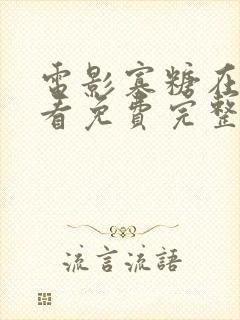 電影寡糖在
看免費完整
流言流語